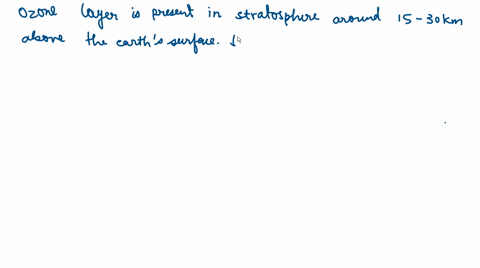 Ozone layer is present in stratosphere around 15-30km
above the earth's surface.